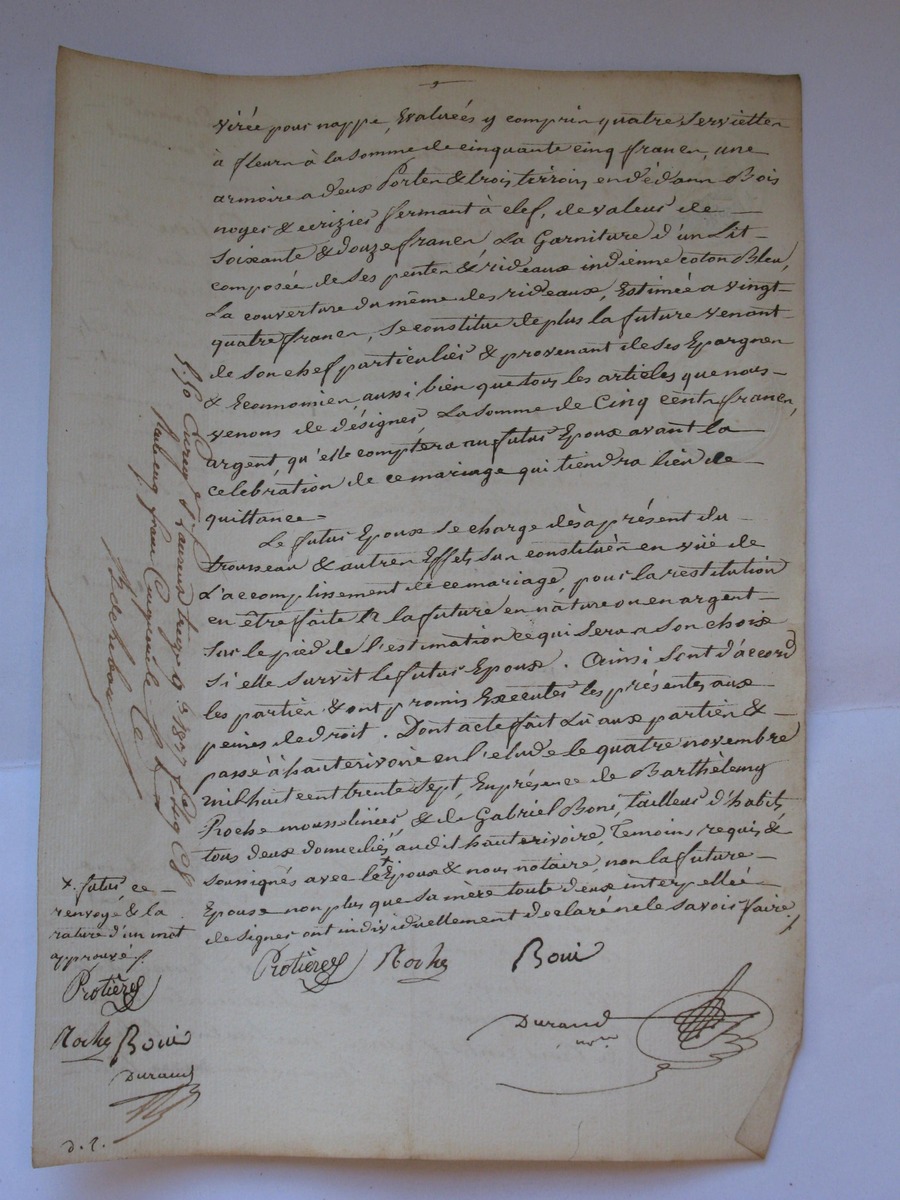 virée pour nappe, Evaluées y comprin quatre Servietten
à fleurn à la somme de cinquante cinq francn, une
armoire a deux Porten & trois tirroirs en dédann Bois
noyer & cerizier fermant à clef, de valeur de
Soixante & douze francn La Garniture d'un Lit
composée de ses penten & rideaux indienne coton Bleu,
La couverture du même des rideaux, Estimée a vingt
quatre francn, Se constitue de plus la future venant
de son chef particulier & provenant de ses Epargnen
& Economien, aussi bien que tous les articles que nous
venons de désigner La somme de Cinq centn francn,
argent, qu'elle comptera au futur Epoux avant la
celebration de ce mariage qui tiendra lieu de
quittance =
Le futur Epoux se charge dès aprésent du
trousseau & autren Effets sun constituén en vüe de
L'accomplissement de ce mariage pour la restitution
en être faite à la future en nature ou en argent
Sur le pied de l'estimation ce qui sera a son choix
si elle survit le futur Epoux. Ainsi sont d'accord
les partien & ont promis Executer les présentes aux
peines de droit. Dont acte fait Lu aux partien &
passé à hauterivoire en l'etude le quatre novembre
mil huit cent trente Sept, En présence de Barthélemy
Roche mousselinier, & de Gabriel Boni, tailleur d'habits,
tous deux domiciliés audit hauterivoire, Temoins requis &
soussignés avec le + Epoux & nous notaire, non la future
Epouse non plus que sa mère toute deux interpellées
de signer ont individuellement declaré ne le savoir faire
Protière Roche Boni
Durand
nore
x. futur ce
renvoyé & la
rature d'un mot
approuvés.
Protière
Roche Boni
Durand
d. r.